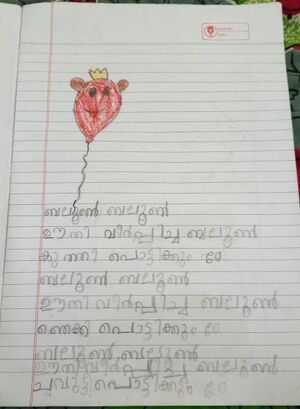 ബലൂൺ ബലൂൺ
ഊതി വീർപ്പിച്ച ബലൂൺ
കുത്തി പൊട്ടിക്കും ഠോ
ബലൂൺ ബലൂൺ
ഊതി വീർപ്പിച്ച ബലൂൺ
ഞെക്കി പൊട്ടിക്കും ഠോ
ബലൂൺ, ബലൂൺ
ഊതി വീർപ്പിച്ച ബലൂൺ
ച്ചവുട്ടി പൊട്ടിക്കും ഠോ